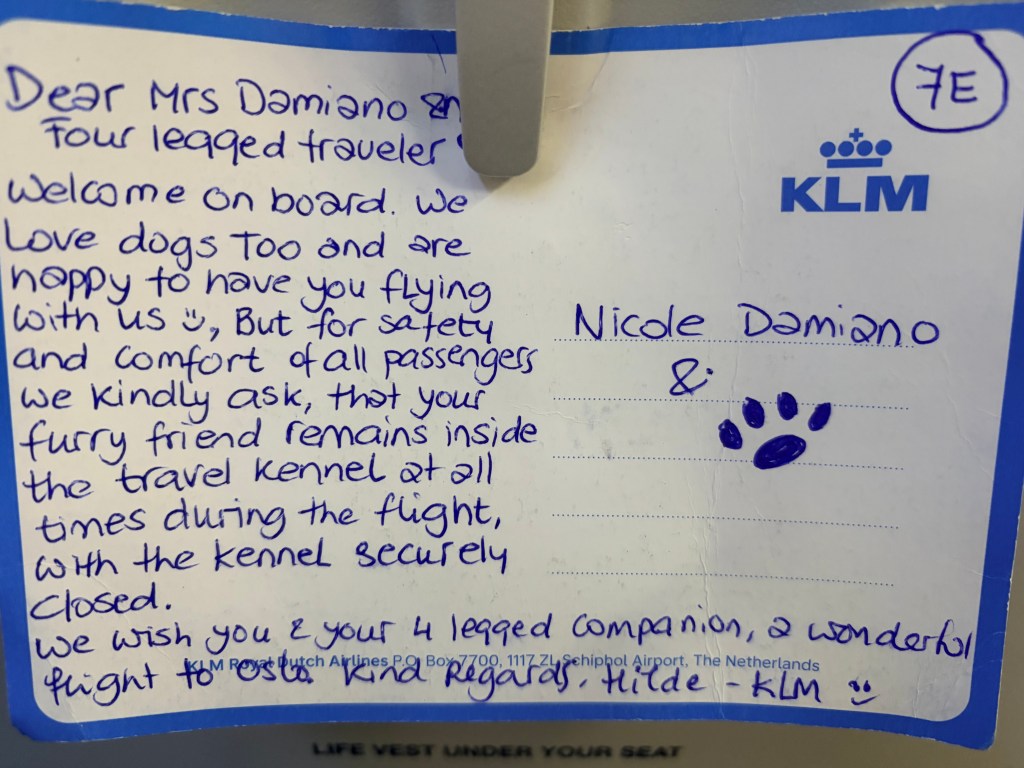 Dear Mrs Damiano &
Four legged traveler
Welcome on board. We
Love dogs Too and are
happy to have you flying
with us :), But for safety
and comfort of all passengers
we kindly ask, that your
furry friend remains inside
the travel kennel at all
times during the flight,
with the kennel securely
closed.
We wish you & your 4 legged companion, a wonderful
flight to Oslo. Kind Regards. Hilde - KLM :)
7E
KLM
Nicole Damiano
&
KLM Royal Dutch Airlines P.O. Box 7700, 1117 ZL Schiphol Airport, The Netherlands
LIFE VEST UNDER YOUR SEAT